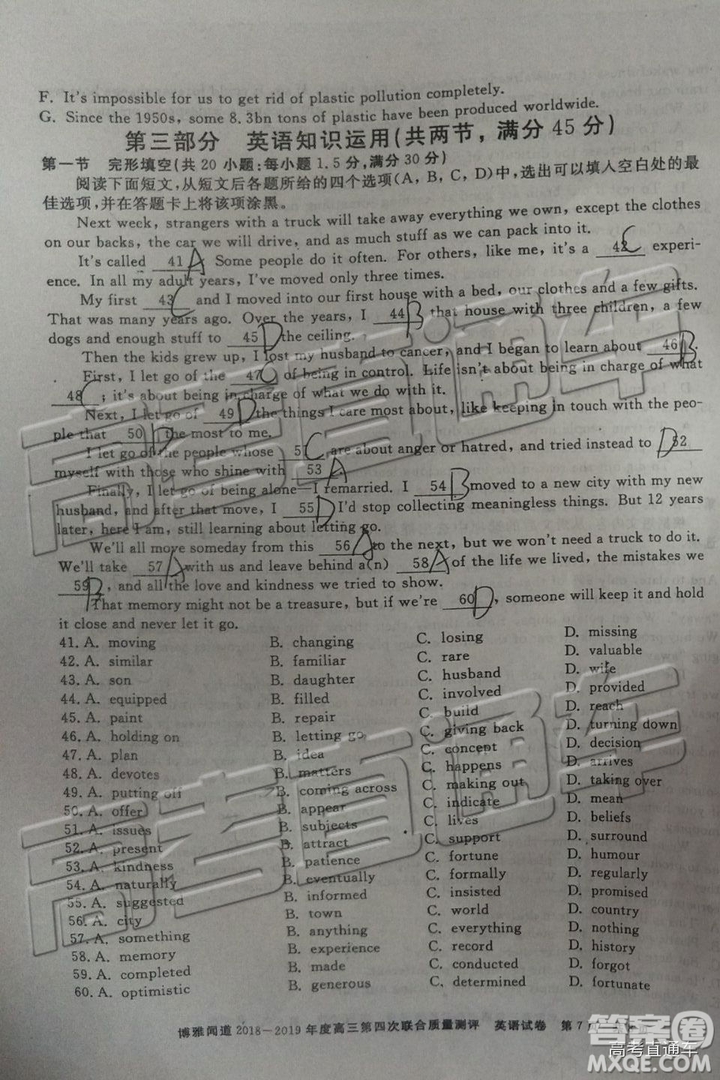 F. It's impossible for us to get rid of plastic pollution completely.
G. Since the 1950s, some 8.3bn tons of plastic have been produced worldwide.
第三部分 英语知识运用(共两节,满分45分)
第一节 完形填空(共20小题;每小题1.5分,满分30分)
阅读下面短文,从短文后各题所给的四个选项(A、B、C、D)中,选出可以填入空白处的最
佳选项,并在答题卡上将该项涂黑。
Next week, strangers with a truck will take away everything we own, except the clothes
on our backs, the car we will drive, and as much stuff as we can pack into it.
It's called 41 A Some people do it often. For others, like me, it's a 42 C experi-
ence. In all my adult years, I've moved only three times.
My first 43 C and I moved into our first house with a bed, our clothes and a few gifts.
That was many years ago. Over the years, I 44 B that house with three children, a few
dogs and enough stuff to 45 D the ceiling.
Then the kids grew up, I lost my husband to cancer, and I began to learn about 46 B.
First, I let go of the 47 C of being in control. Life isn't about being in charge of what
48 C; it's about being in charge of what we do with it.
Next, I let go of 49 D the things I care most about, like keeping in touch with the peo-
ple that 50 D the most to me.
I let go of the people whose 5 C are about anger or hatred, and tried instead to D 52
myself with those who shine with 53 A
Finally, I let go of being alone—I remarried. I 54 B moved to a new city with my new
husband, and after that move, I 55 D I'd stop collecting meaningless things. But 12 years
later, here I am, still learning about letting go.
We'll all move someday from this 56 A to the next, but we won't need a truck to do it.
We'll take 57 A with us and leave behind a(n) 58 A of the life we lived, the mistakes we
59 B, and all the love and kindness we tried to show.
That memory might not be a treasure, but if we're 60 D, someone will keep it and hold
it close and never let it go.
41. A. moving B. changing C. losing D. missing
42. A. similar B. familiar C. rare D. valuable
43. A. son B. daughter C. husband D. wife
44. A. equipped B. filled C. involved D. provided
45. A. paint B. repair C. build D. reach
46. A. holding on B. letting go C. giving back D. turning down
47. A. plan B. idea C. concept D. decision
48. A. devotes B. matters C. happens D. arrives
49. A. putting off B. coming across C. making out D. taking over
50. A. offer B. appear C. indicate D. mean
51. A. issues B. subjects C. lives D. beliefs
52. A. present B. attract C. support D. surround
53. A. kindness B. patience C. fortune D. humour
54. A. naturally B. eventually C. formally D. regularly
55. A. suggested B. informed C. insisted D. promised
56. A. city B. town C. world D. country
57. A. something B. anything C. everything D. nothing
58. A. memory B. experience C. record D. history
59. A. completed B. made C. conducted D. forgot
60. A. optimistic B. generous C. determined D. fortunate
博雅闻道2018—2019年度高三第四次联合质量测评 英语试卷 第7
高考直通车
高考直通车
答案圈
MXQE.COM
高考直通车